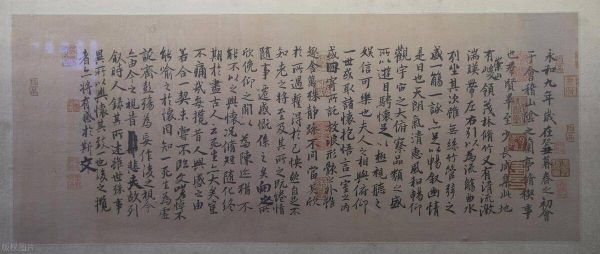 永和九年歲在癸丑暮春之初會
于會稽山陰之蘭亭脩稧事
也群賢畢至少長咸集此地
有崇山峻領茂林脩竹又有清流激
湍暎帶左右引以為流觴曲水
列坐其次雖無絲竹管弦之
盛一觴一詠亦足以暢敘幽情
是日也天朗氣清惠風和暢仰
觀宇宙之大俯察品類之盛
所以遊目騁懷足以極視聽之
娛信可樂也夫人之相與俯仰
一世或取諸懷抱悟言一室之內
或因寄所託放浪形骸之外雖
趣舍萬殊靜躁不同當其欣
於所遇暫得於己怏然自足不
知老之將至及其所之既惓情
隨事遷感慨係之矣向之所
欣俛仰之閒以為陳迹猶不
能不以之興懷況脩短隨化終
期於盡古人云死生亦大矣豈
不痛哉每攬昔人興感之由
若合一契未嘗不臨文嗟悼不
能喻之於懷固知一死生為虛
誕齊彭殤為妄作後之視今
亦由今之視昔悲夫故列
敘時人錄其所述雖世殊事
異所以興懷其致一也後之攬
者亦將有感於斯文
版权图片